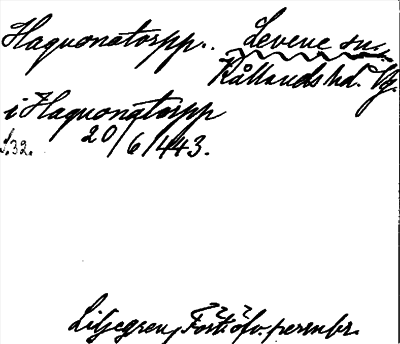 Haquonatorpp. Levene sn.
Kållands hd. Vg.
i Haquonatorpp
20/6 1443.
S. 32.
Liljegren, Fört. öfv. permbr.